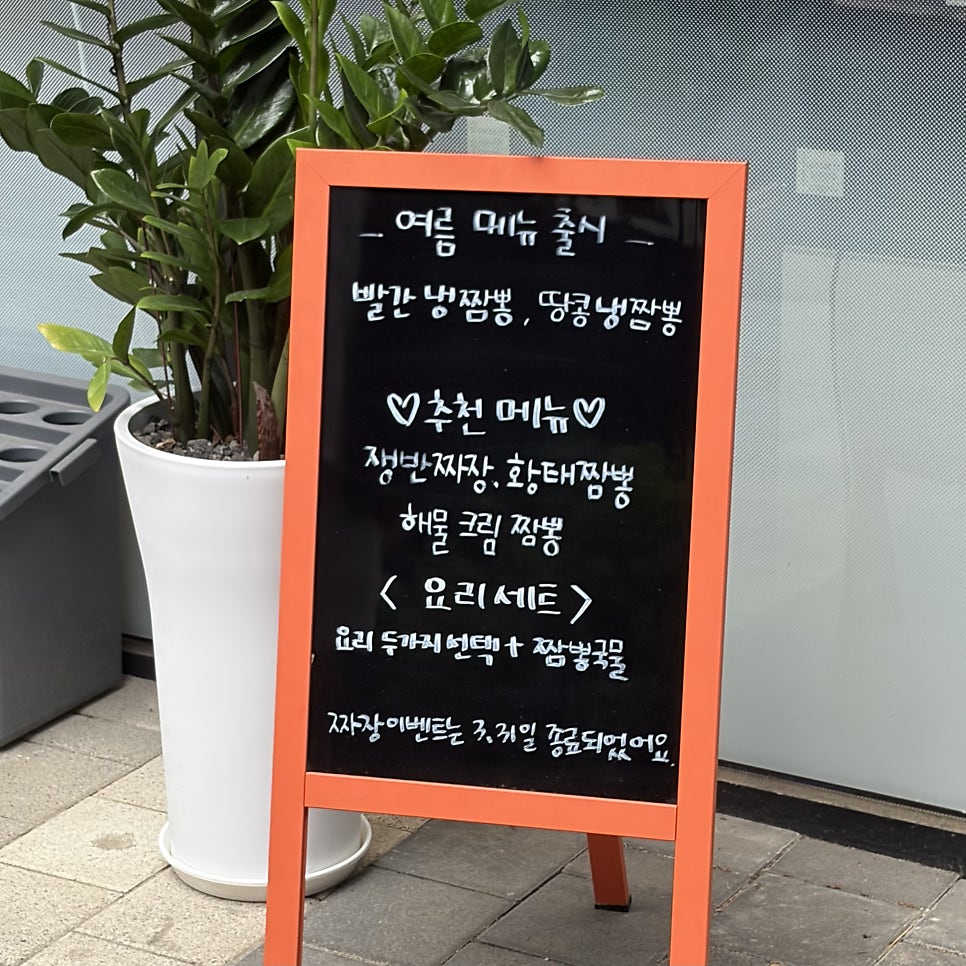 - 여름 메뉴 출시 -
빨간 냉짬뽕, 땅콩냉짬뽕
♡추천 메뉴♡
쟁반짜장, 황태짬뽕
해물 크림 짬뽕
< 요리세트 >
요리 두가지 선택 + 짬뽕국물
짜장이벤트는 3.31일 종료되었어요.